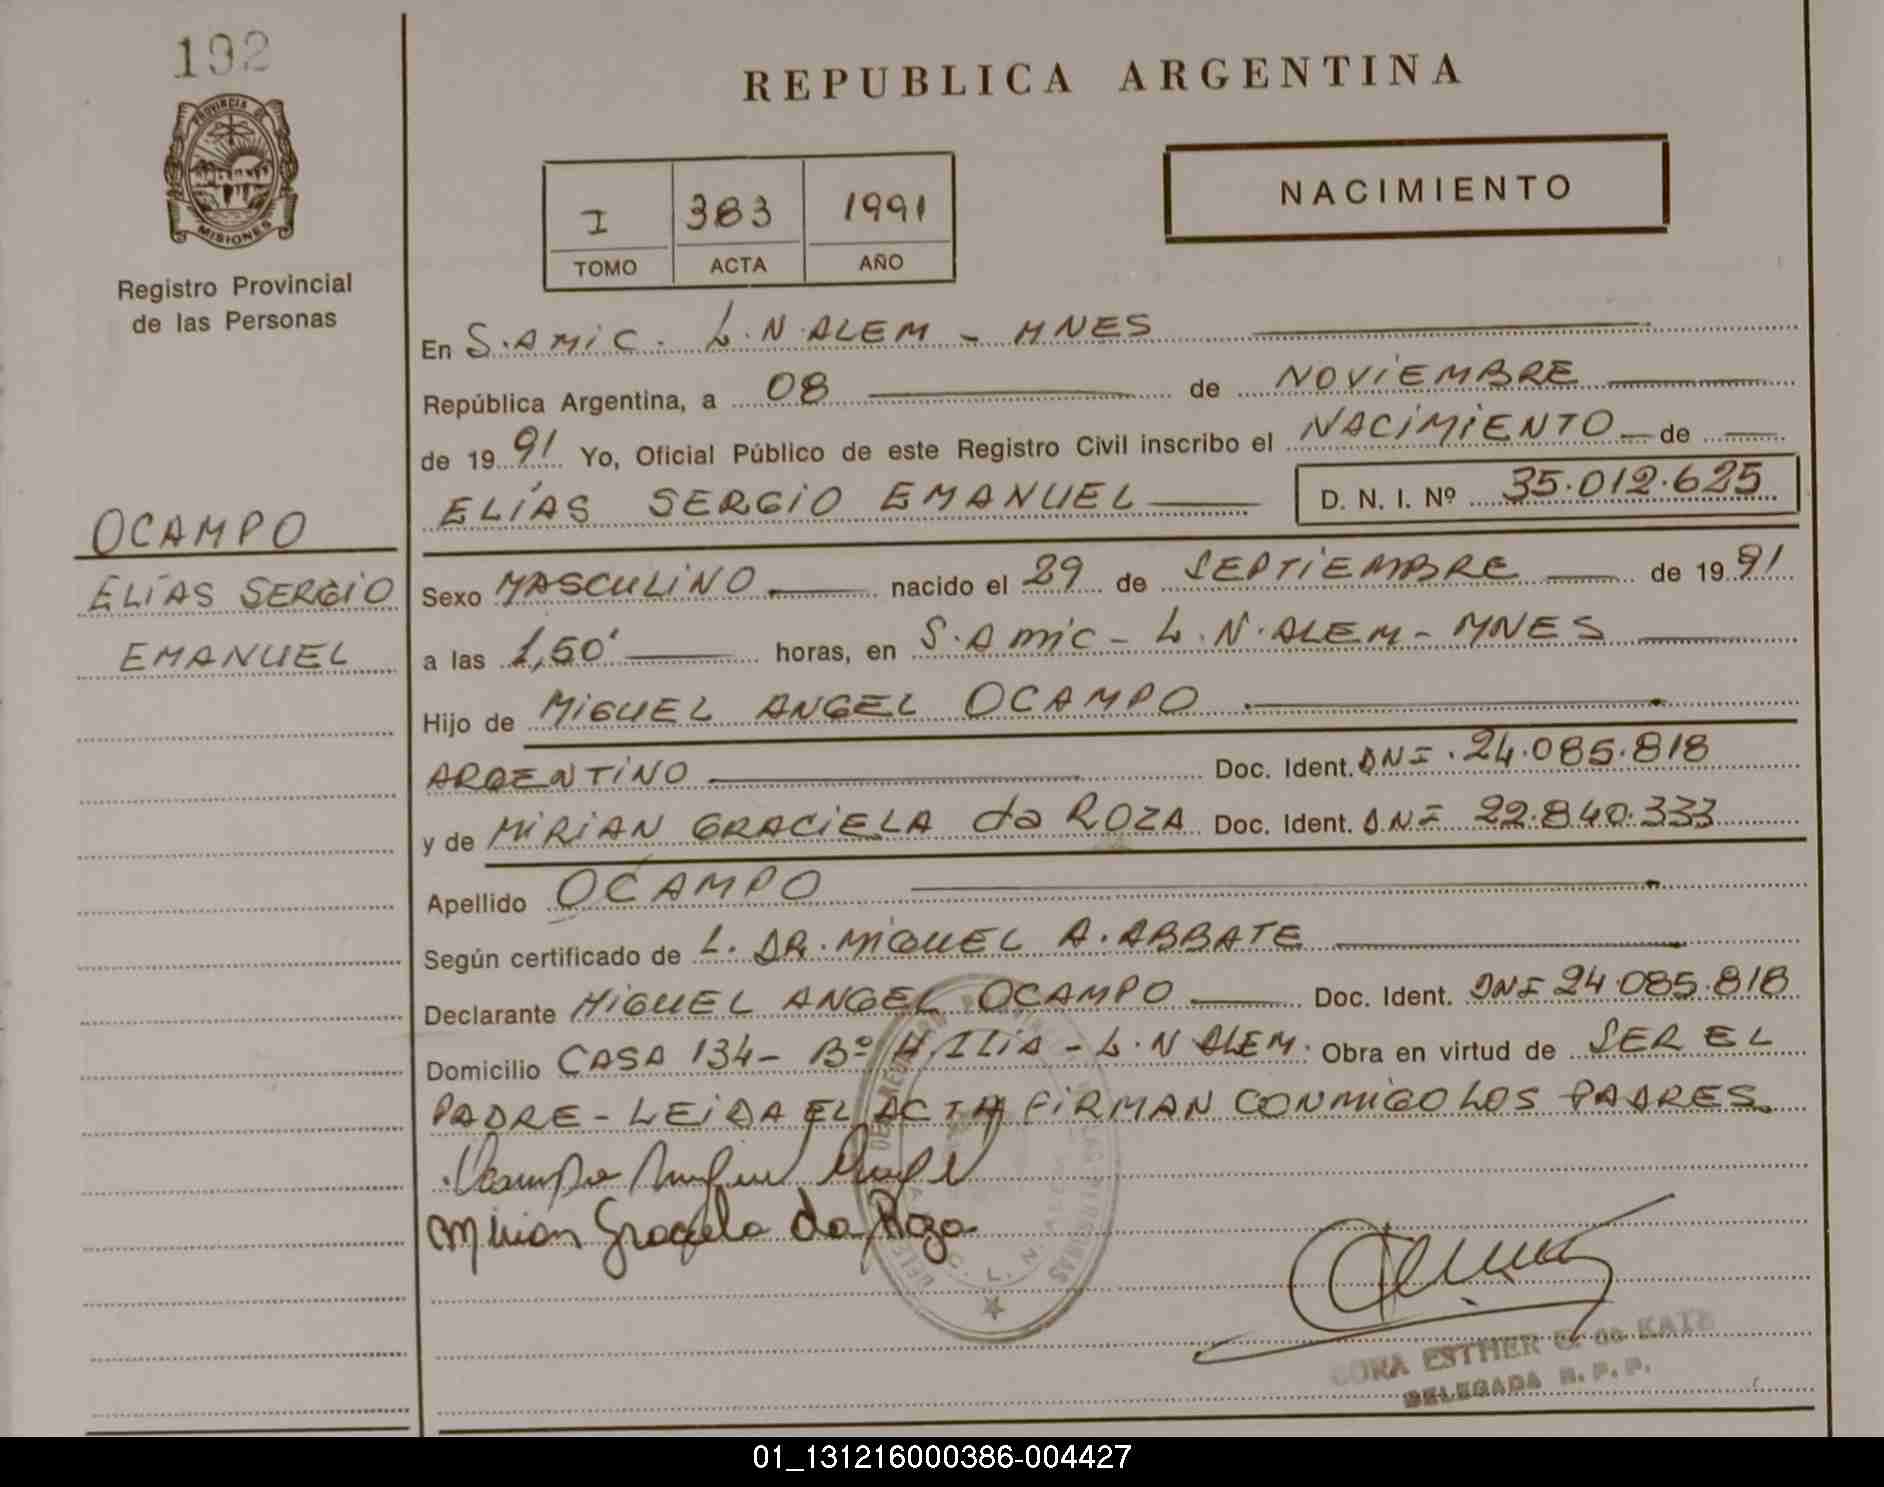 192
PROVINCIA DE
MISIONES
Registro Provincial
de las Personas
OCAMPO
ELÍAS SERGIO
EMANUEL
REPUBLICA ARGENTINA
I 383 1991
TOMO ACTA AÑO
NACIMIENTO
En S.AMIC. L.N.ALEM - MNES
República Argentina, a 08 de NOVIEMBRE
de 1991 Yo, Oficial Público de este Registro Civil inscribo el NACIMIENTO de
ELÍAS SERGIO EMANUEL D. N. I. Nº 35.012.625
Sexo MASCULINO nacido el 29 de SEPTIEMBRE de 1991
a las 1,50' horas, en S.AMIC - L.N.ALEM - MNES
Hijo de MIGUEL ANGEL OCAMPO
ARGENTINO Doc. Ident. DNI. 24.085.818
y de MIRIAN GRACIELA da ROZA Doc. Ident. DNI 22.840.333
Apellido OCAMPO
Según certificado de L. DR. MIGUEL A. ABBATE
Declarante MIGUEL ANGEL OCAMPO Doc. Ident. DNI 24.085.818
Domicilio CASA 134 - Bº A. ILIA - L.N ALEM. Obra en virtud de SER EL
PADRE - LEIDA EL ACTA FIRMAN CONMIGO LOS PADRES.
Ocampo Miguel Angel
Mirian Graciela da Roza
ESTHER de KATZ
DELEGADA R.P.P.
01_131216000386-004427